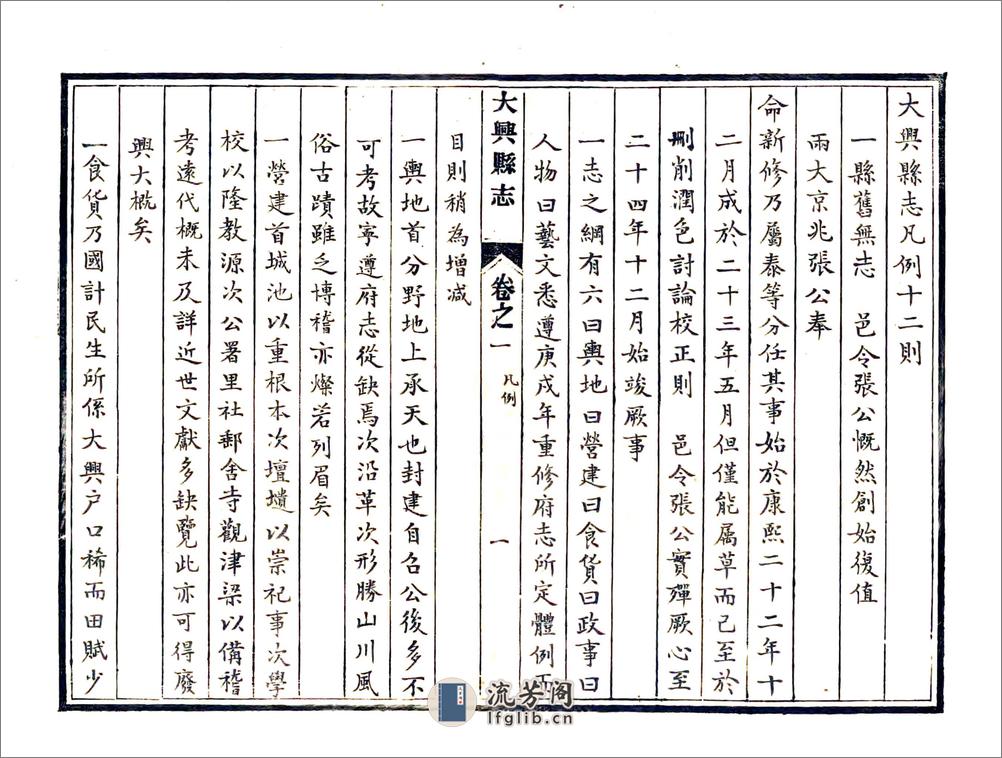 大興縣志凡例十二則
一縣舊無志　邑令張公慨然創始復值
兩大京兆張公奉
命新修乃屬泰等分任其事始於康熙二十二年十
二月成於二十三年五月但僅能属草而已至於
刪削潤色討論校正則　邑令張公實殫厥心至
二十四年十二月始竣厥事
一志之綱有六曰輿地曰營建曰食貨曰政事曰
人物曰藝文悉遵庚戌年重修府志所定體例而
大興縣志　卷之一　凡例　一
目則稍為增減
一輿地首分野地上承天也封建自召公後多不
可考故寧遵府志從缺焉次沿革次形勝山川風
俗古蹟雖乏博稽亦燦若列眉矣
一營建首城池以重根本次壇壝以崇祀事次學
校以隆教源次公署里社郵舍寺觀津梁以備稽
考遠代概未及詳近世文獻多缺覽此亦可得廢
興大概矣
一食貨乃國計民生所係大興户口稀而田賦少
流芳阁
lfglib.cn